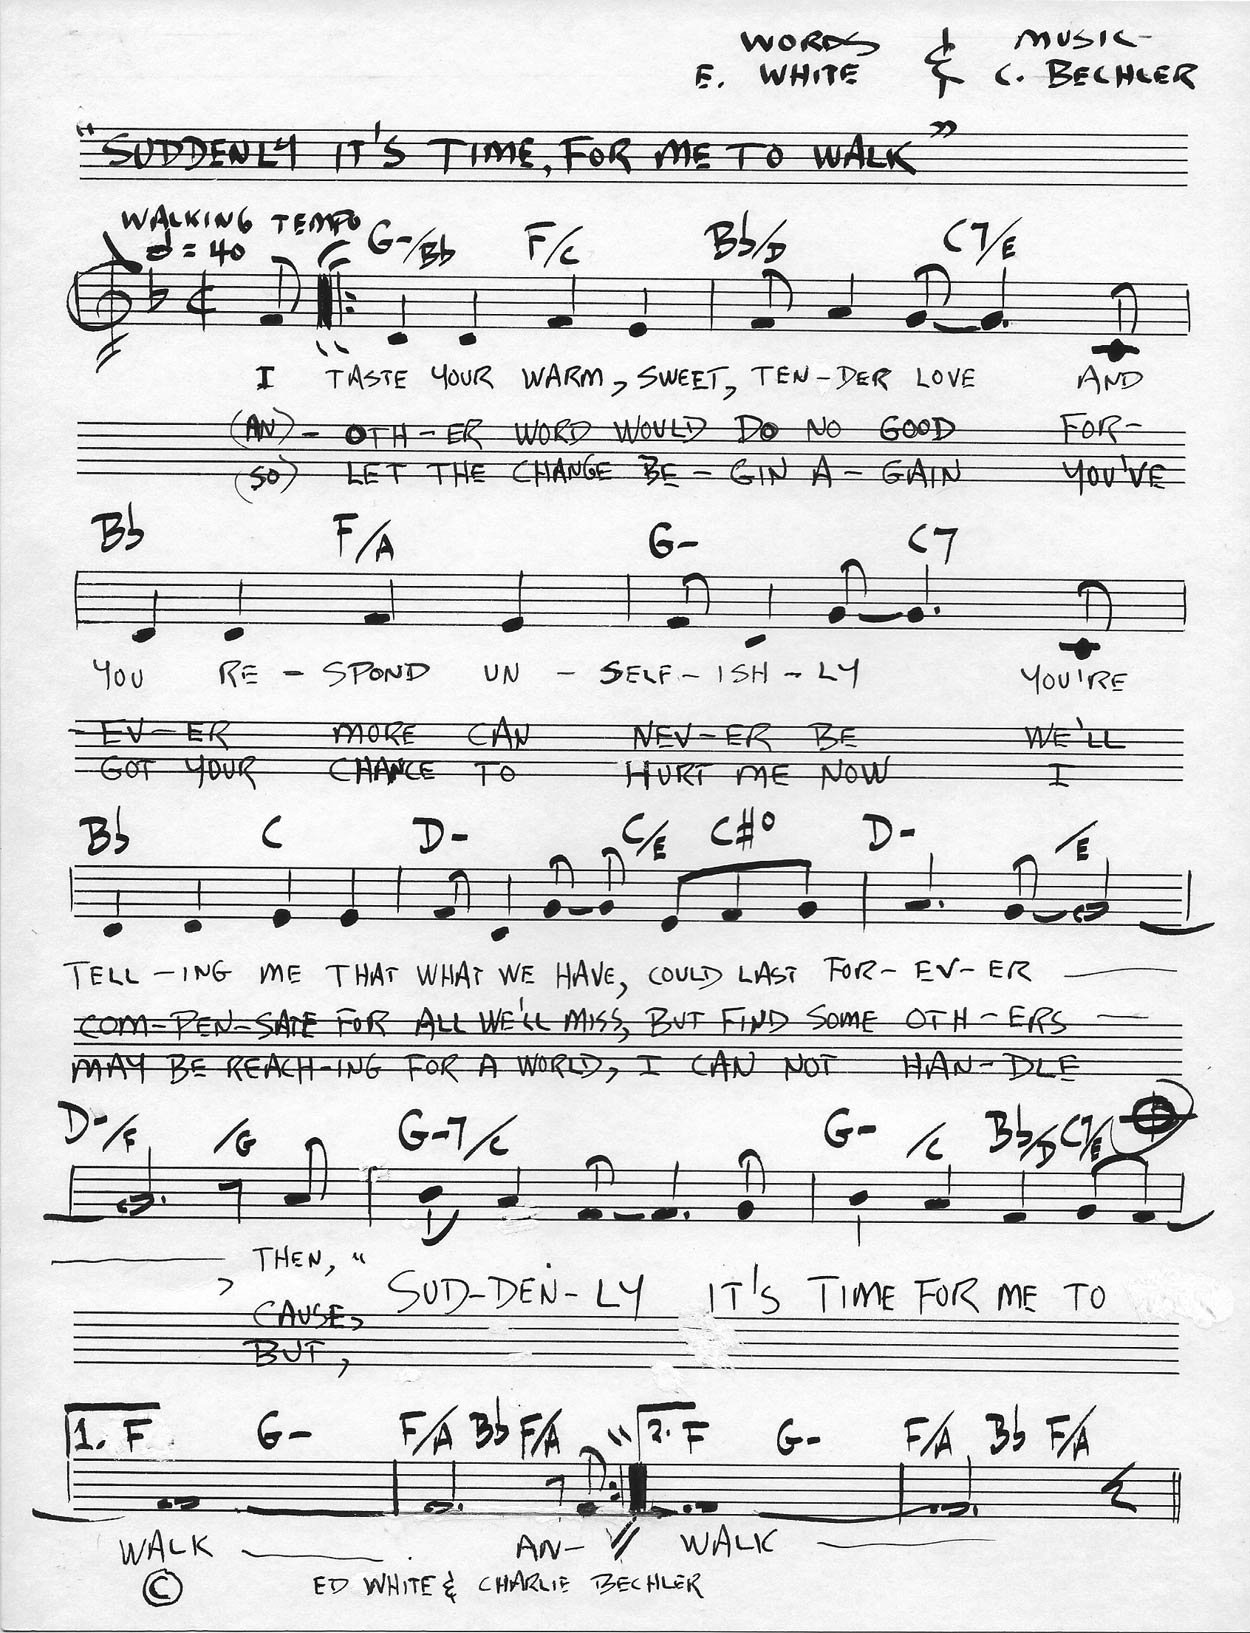 WORDS & MUSIC-
E. WHITE & C. BECHLER
"SUDDENLY IT'S TIME, FOR ME TO WALK"
WALKING TEMPO
𝅗𝅥 = 40
G-/Bb F/C Bb/D C7/E
I TASTE YOUR WARM, SWEET, TEN-DER LOVE AND
(AN)- OTH-ER WORD WOULD DO NO GOOD FOR-
(SO) LET THE CHANGE BE-GIN A-GAIN YOU'VE
Bb F/A G- C7
YOU RE-SPOND UN-SELF-ISH-LY YOU'RE
-EV-ER MORE CAN NEV-ER BE WE'LL
GOT YOUR CHANCE TO HURT ME NOW I
Bb C D- C/E C#° D- /E
TELL-ING ME THAT WHAT WE HAVE, COULD LAST FOR-EV-ER
COM-PEN-SATE FOR ALL WE'LL MISS, BUT FIND SOME OTH-ERS
MAY BE REACH-ING FOR A WORLD, I CAN NOT HAN-DLE
D-/F /G G-7/C G- /C Bb/D C7/E
THEN, "
, CAUSE, SUD-DEN-LY IT'S TIME FOR ME TO
BUT,
1. F G- F/A Bb F/A " 2. F G- F/A Bb F/A
WALK . AN- // WALK
© ED WHITE & CHARLIE BECHLER